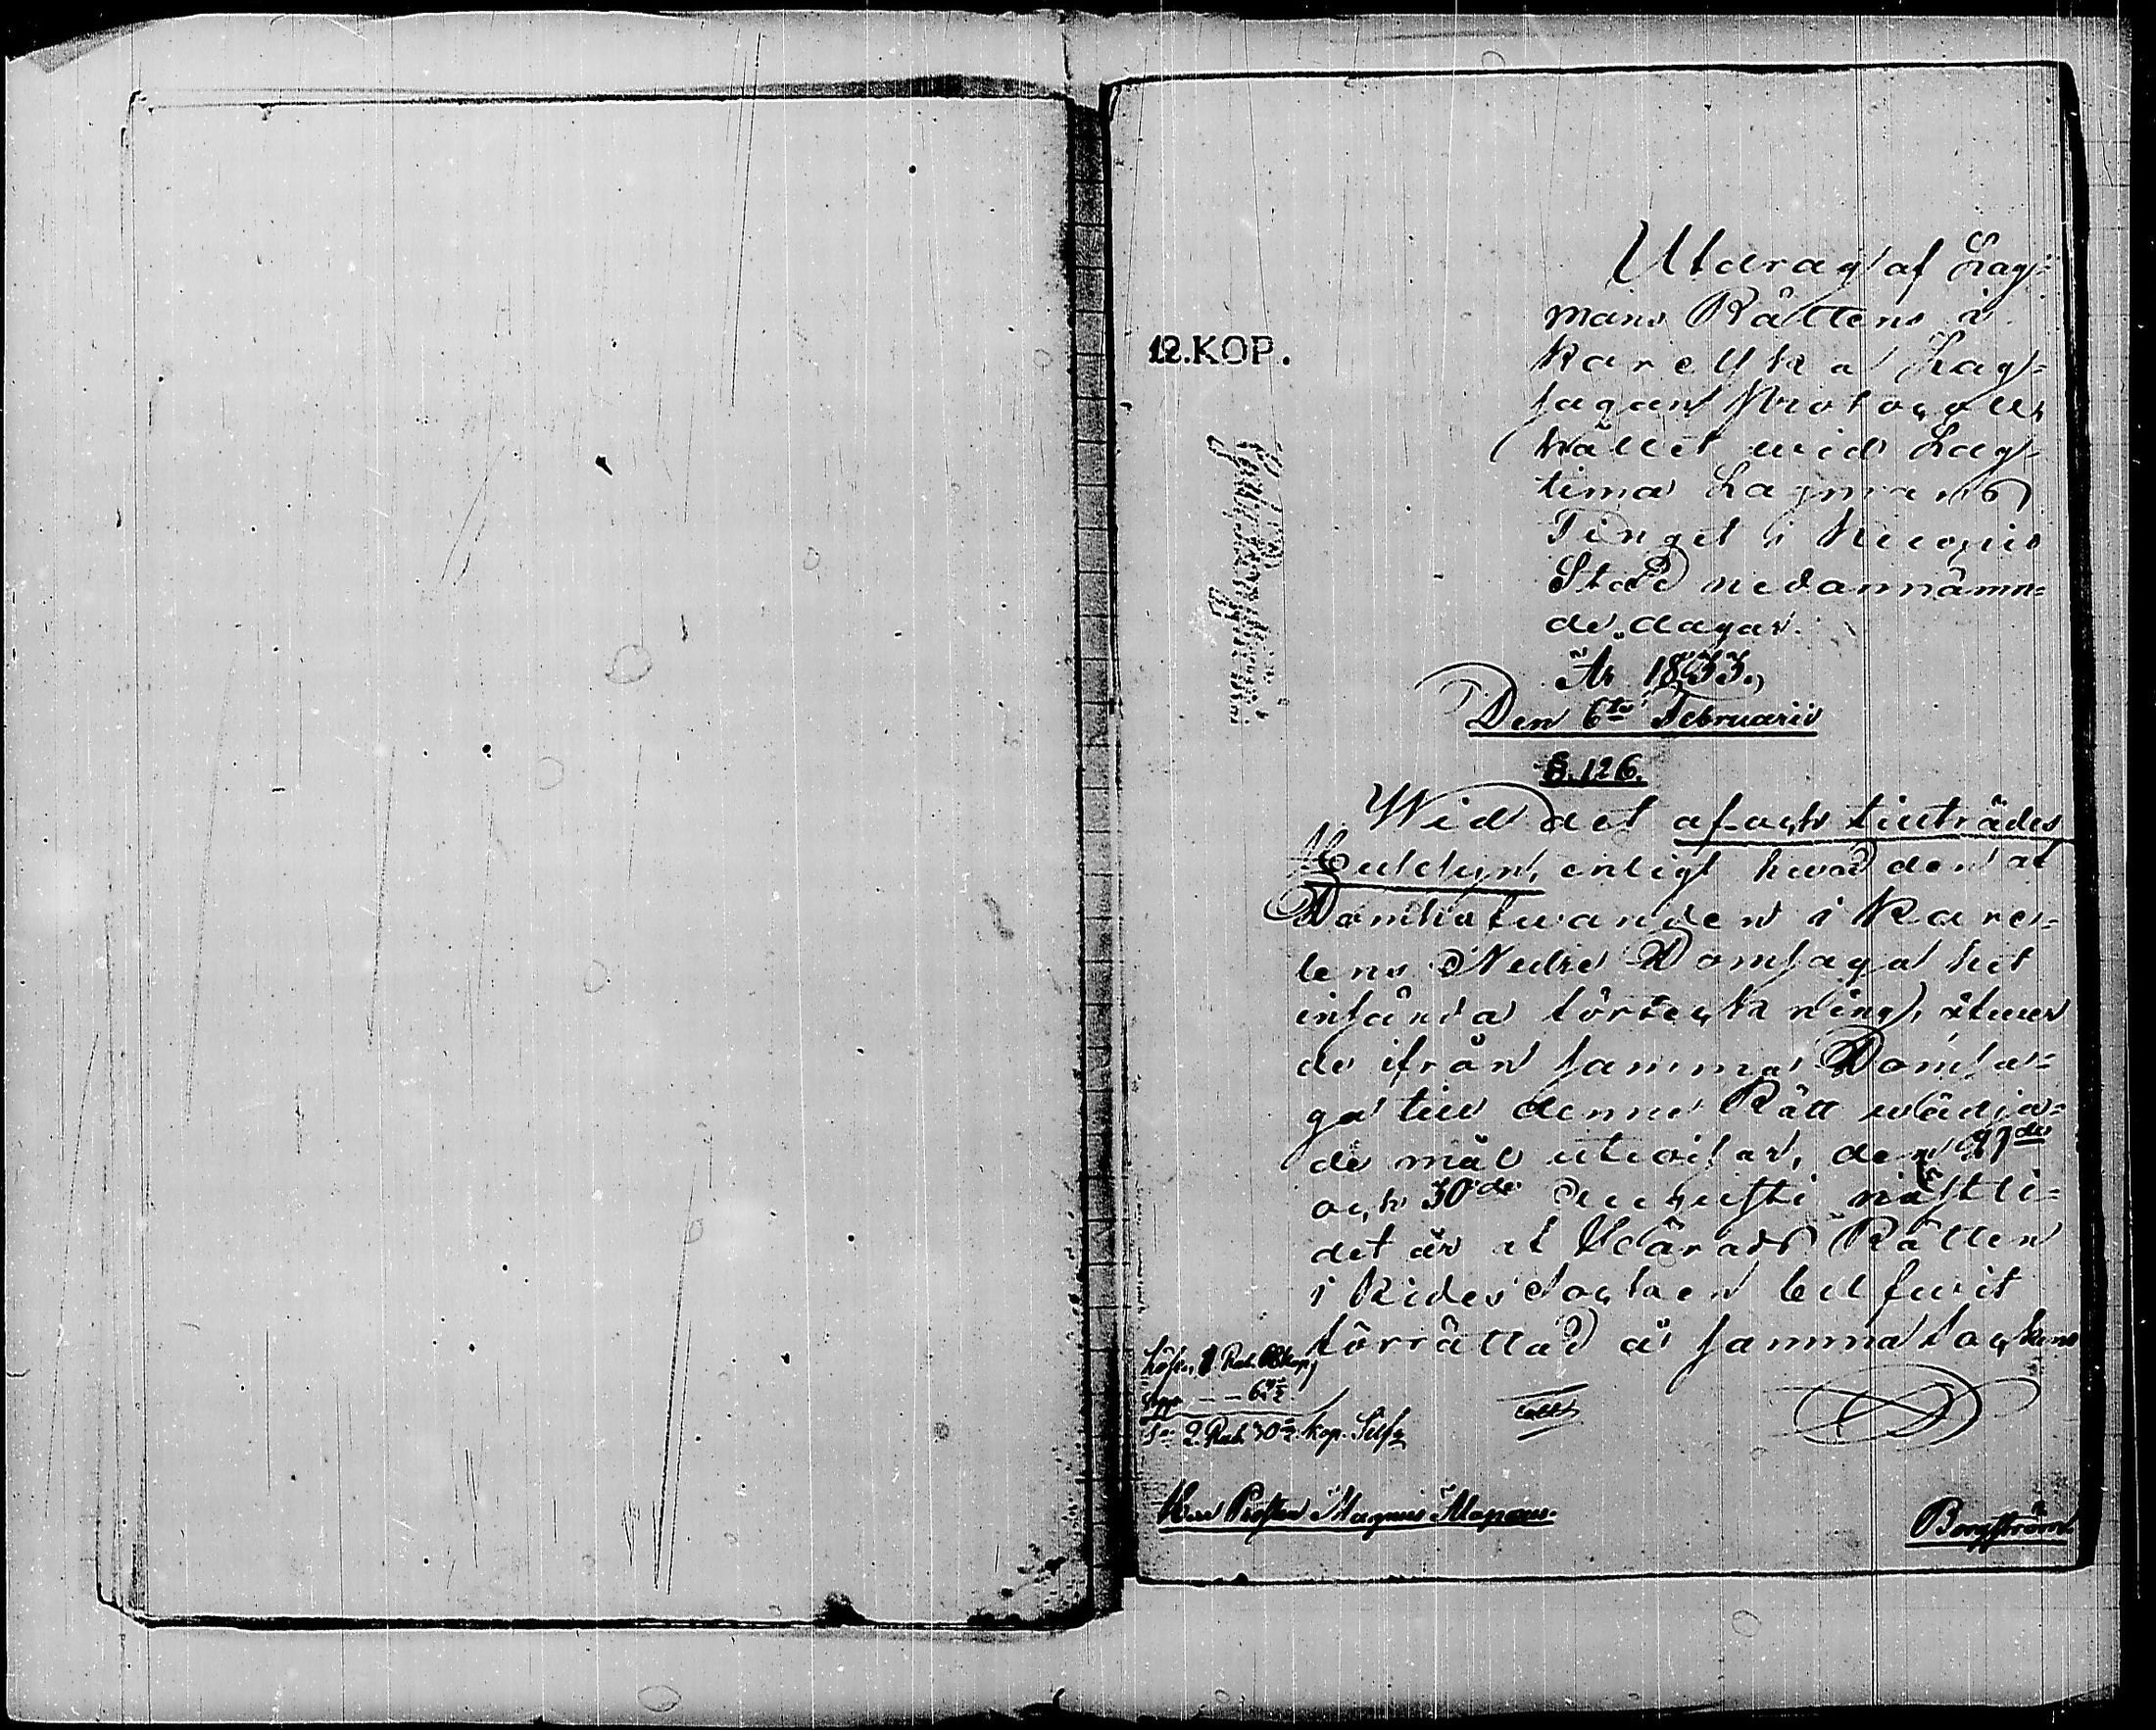 Utdrag af Lag-
mans Rättens i
Karelska Lag-
sagan Protocoll,
hållit wid Lag-
tima Lagmans
Tinget i Kuopio
Stad nedannämn-
de dagar.
År 1833.
Den 6te Februarii
12.KOP.
§.126.
Wid det af och till träde
enligt hwad den af
Domhafwanden i Kare-
lens Nedre Domsaga hit
insända förteckning, öfwer
de ifrån samma Domsa-
ga till denne Rätt wädja-
de mål utwisar, den 27de
och 30de Augusti nästli-
det år af Härads Rätten
i Kides Socken blifwit
förrättad å samma Sockens
Lösen, 2. Rub. kop.
2. Rub. 30 kop. Silfr
Herr Prosten Magnus Alopæus.
Borgström